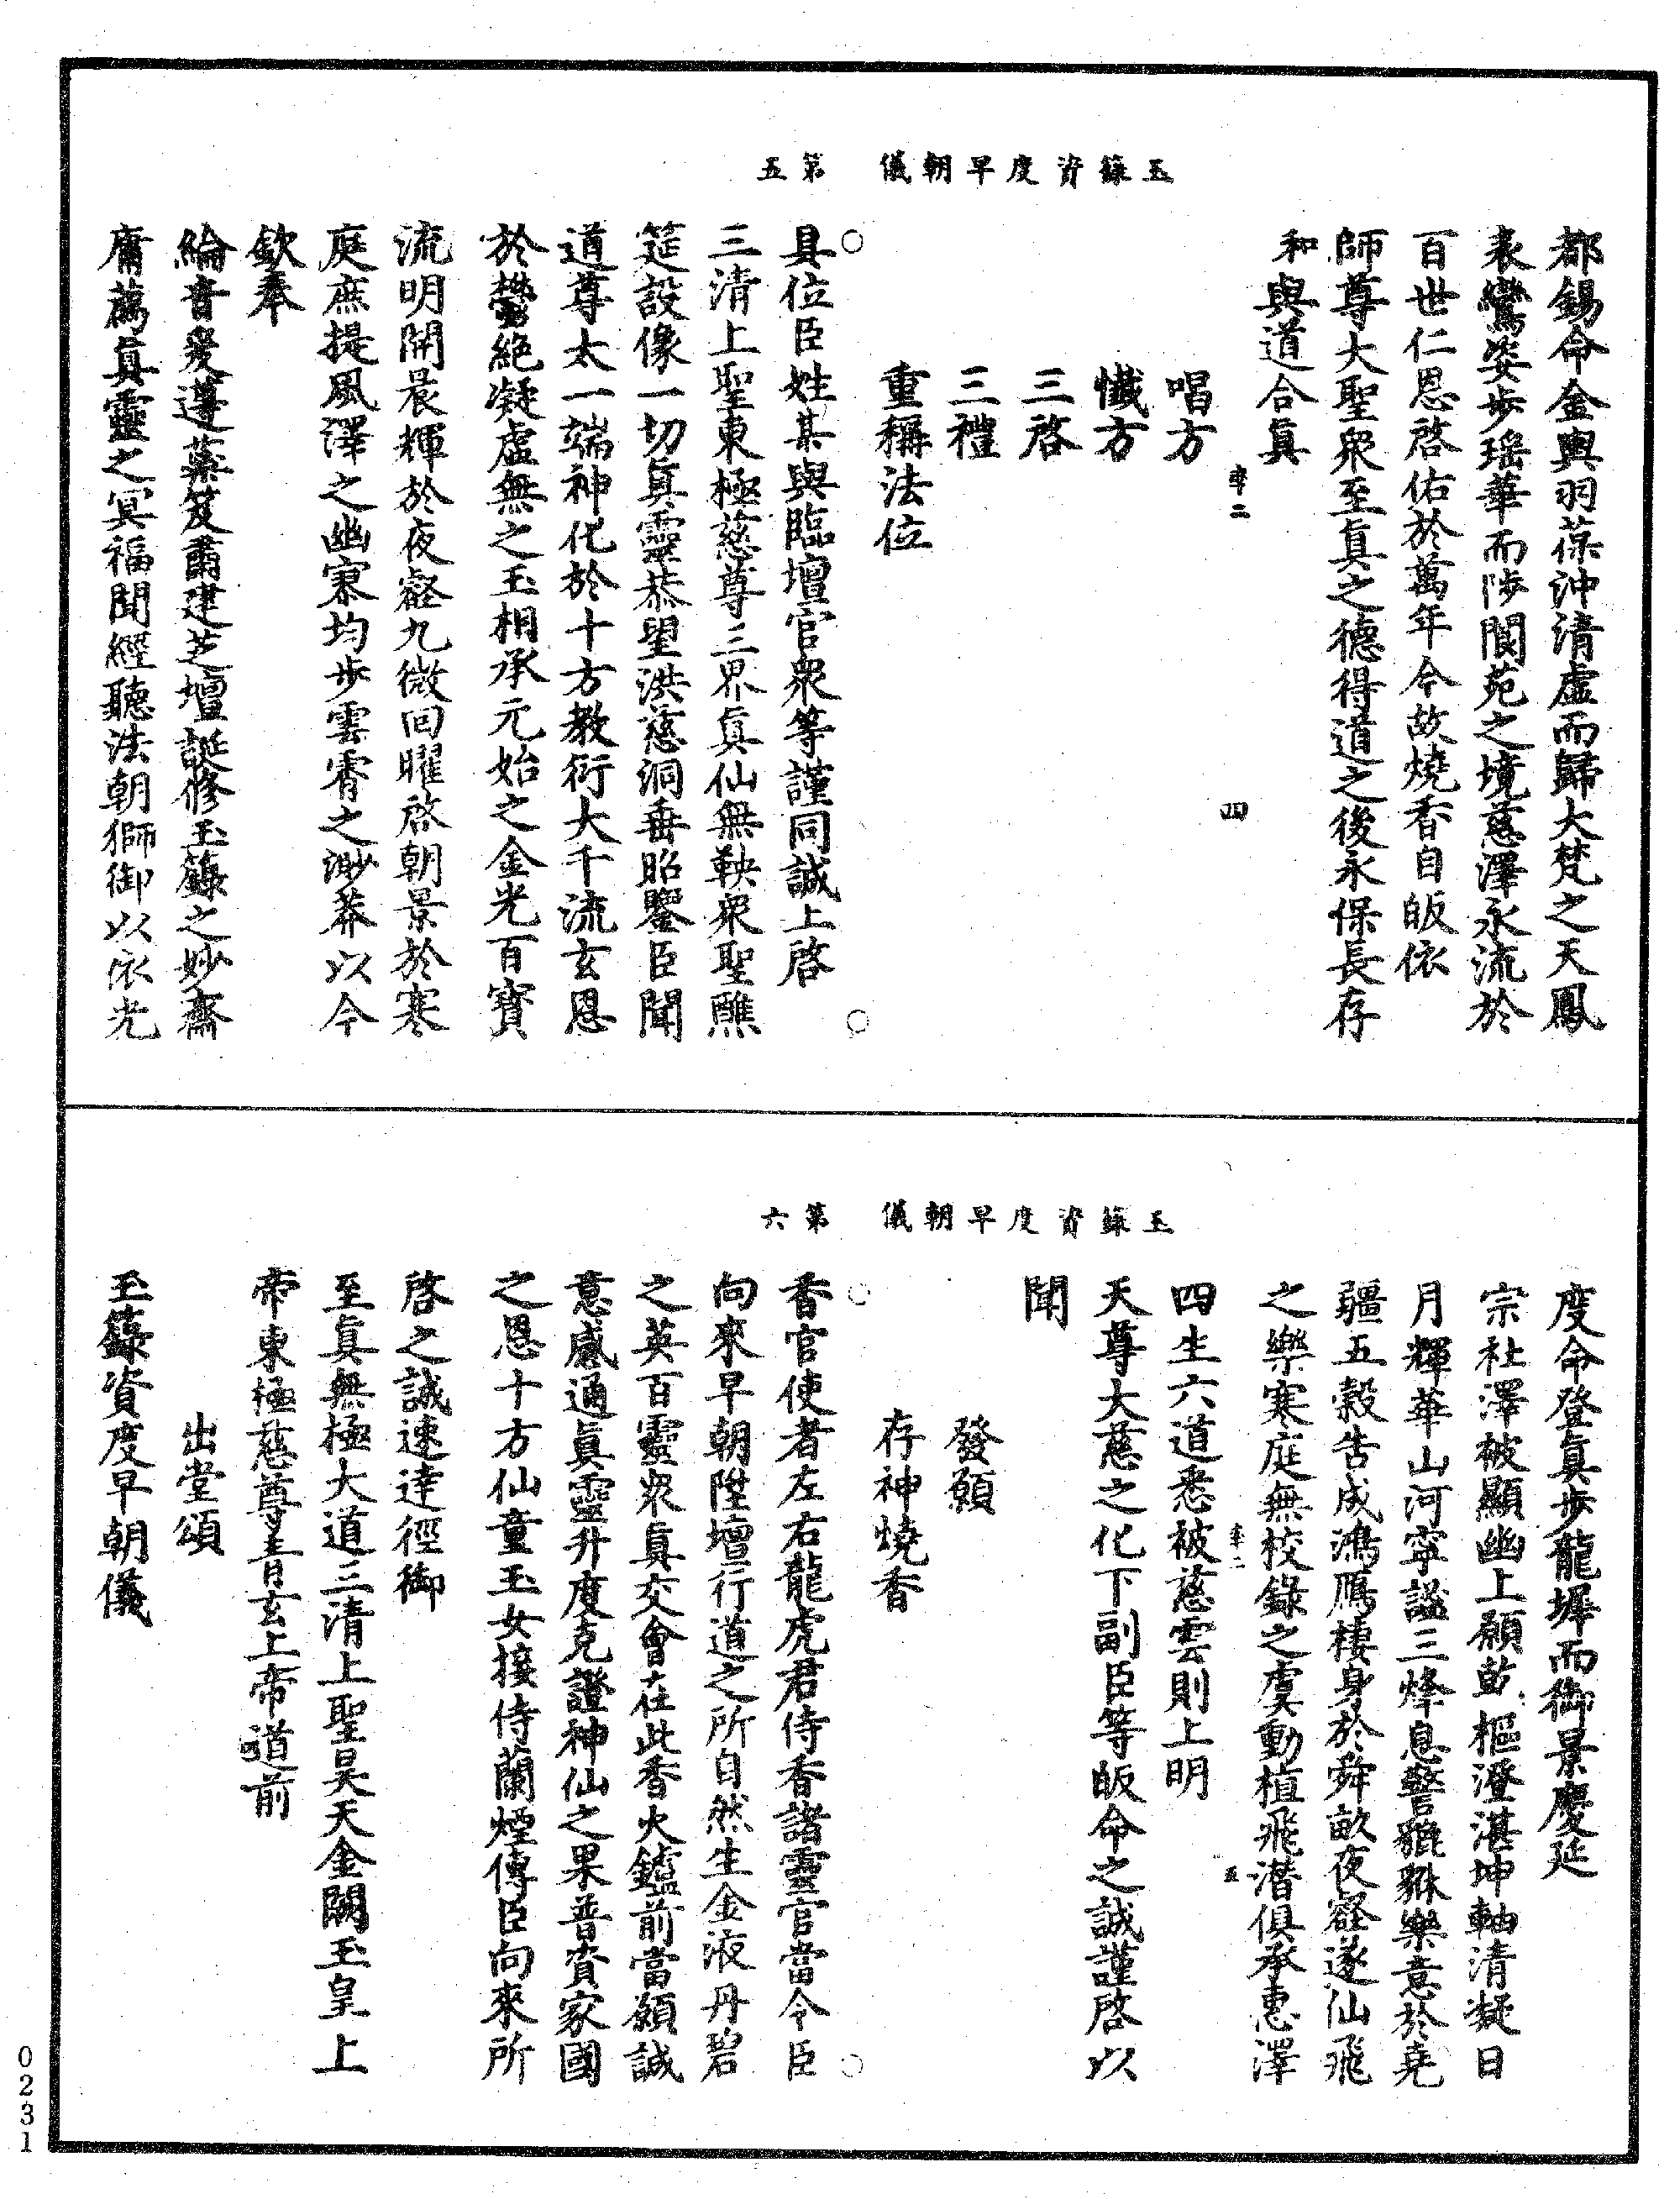 玉籙資度早朝儀　第五
都錫命金輿羽葆沖清虛而歸大梵之天鳳
表鸞姿步瑶華而陟閬苑之境慈澤永流於
百世仁恩啓佑於萬年今故燒香自皈依
師尊大聖衆至真之德得道之後永保長存
和與道合真
率二　四
唱方
懺方
三啓
三禮
重稱法位
具位臣姓某與臨壇官衆等謹同誠上啓
三清上聖東極慈尊三界真仙無鞅衆聖醮
筵設像一切真靈恭望洪慈洞垂昭鑒臣聞
道尊太一端神化於十方教衍大千流玄恩
於鬱絶凝虛無之玉相承元始之金光百寶
流明開晨輝於夜壑九微回曜啓朝景於寒
庭庶提風澤之幽寡均步雲霄之渺莽以今
欽奉
綸音爰遵蘂笈肅建芝壇誕修玉籙之妙齋
庸薦真靈之冥福聞經聽法朝獅御以依光
玉籙資度早朝儀　第六
度命登真步龍墀而御景慶延
宗社澤被顯幽上願乾樞澄湛坤軸清凝日
月輝華山河寧謐三烽息警貔貅樂意於堯
疆五穀告成鴻鴈棲身於舜畝夜壑遂仙飛
之樂寒庭無校錄之虞動植飛潛俱承惠澤
率二　五
四生六道悉被慈雲則上明
天尊大慈之化下副臣等皈命之誠謹啓以
聞
發願
存神燒香
香官使者左右龍虎君侍香諸靈官當令臣
向來早朝陞壇行道之所自然生金液丹碧
之英百靈衆真交會在此香火鑪前當願誠
意感通真靈升度克證神仙之果普資家國
之恩十方仙童玉女接侍蘭煙傳臣向來所
啓之誠速達徑御
至真無極大道三清上聖昊天金闕玉皇上
帝東極慈尊青玄上帝道前
出堂頌
玉籙資度早朝儀
0231